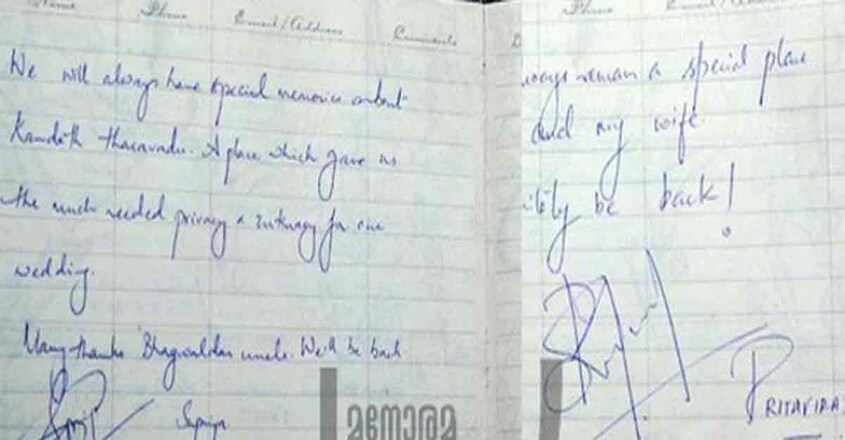 Name Phone Email/Address Comments
We will always have special memories about
Kandath tharavadu. A place which gave us
the much needed privacy & intimacy for our
wedding.
Many thanks Bhagwaldas uncle. We'll be back
Supriya
Phone
ways remain a special place
and my wife
be back!
PRITHVIRAJ
മനോരമ